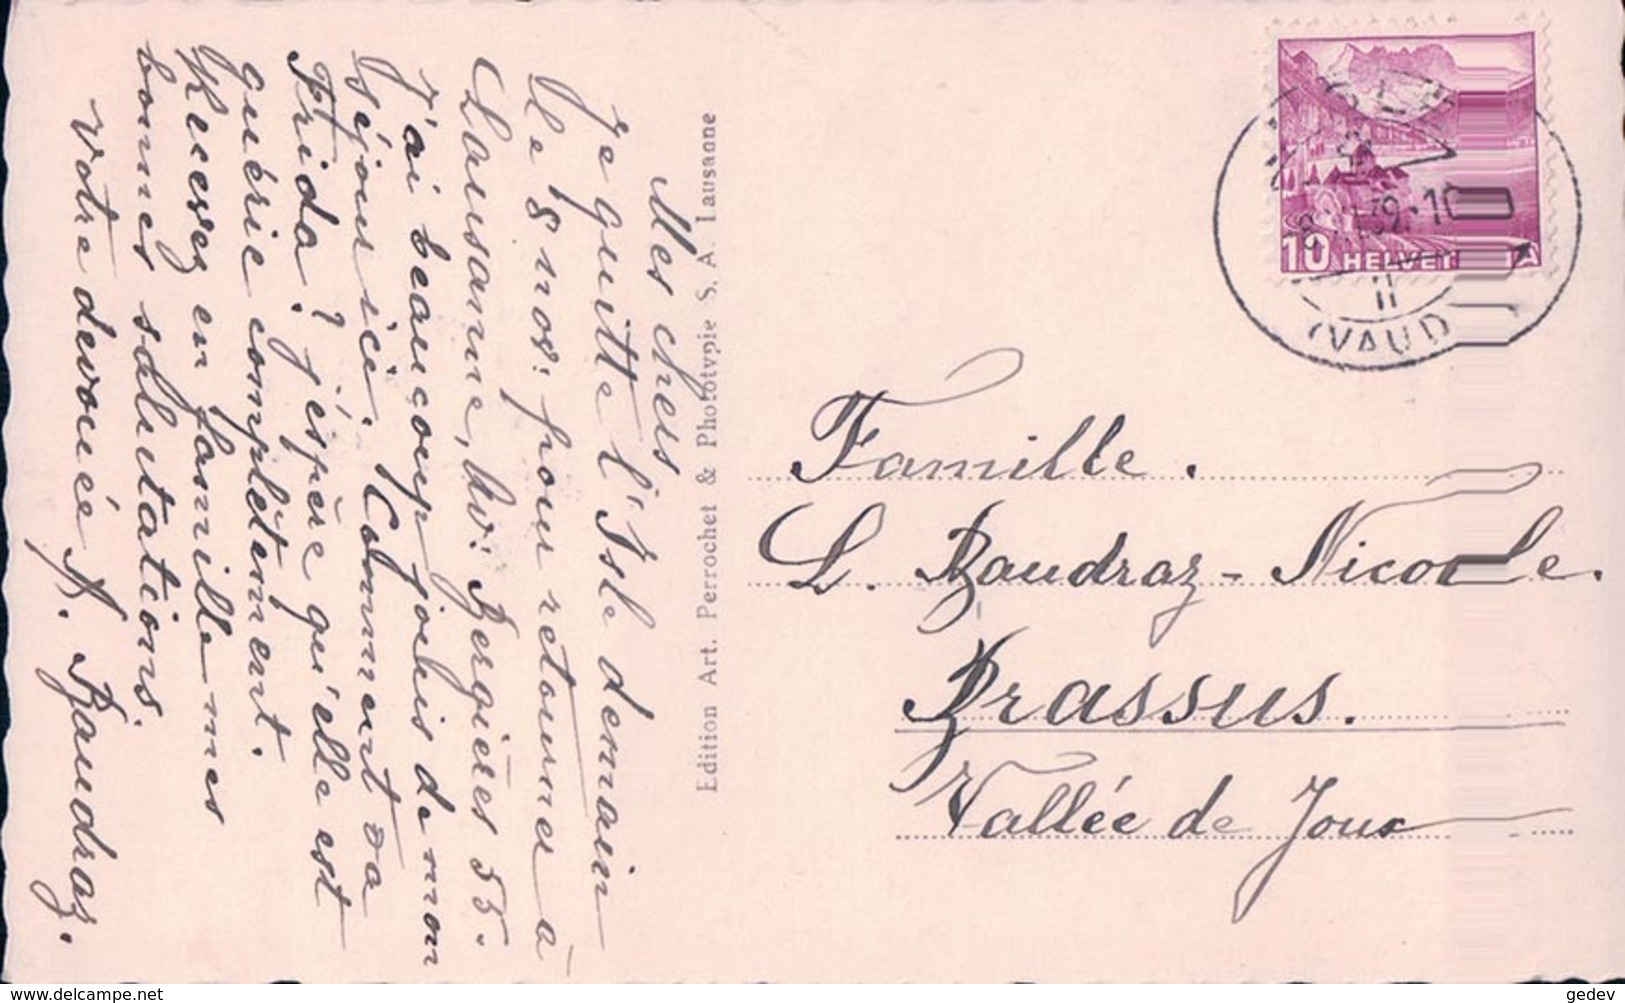 Mes chers
Je quitte l'Isle demain
le 8 nov. pour retourner à
Lausanne, Av. Bergières 55.
J'ai beaucoup joui de mon
séjour ici. Comment va
Frida? j'éspère qu'elle est
guérie complètement.
Recevez en famille mes
bonnes salutations.
Votre dévouée
Baudraz.
Edition Art. Perrochet & Phototypie S. A. Lausanne
10 HELVETIA
(VAUD)
Famille.
L. Baudraz-Nicole.
Brassus.
Vallée de Joux
www.delcampe.net
gedev